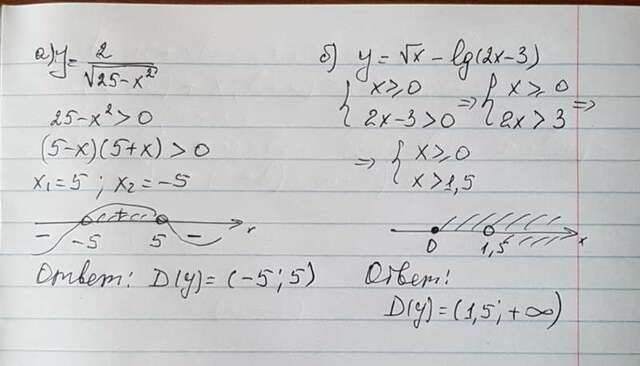 а) y = 2/√(25-x²)
25-x² > 0
(5-x)(5+x) > 0
x₁ = 5 ; x₂ = -5
- + -
-5 5 x
Ответ: D(y) = (-5; 5)
б) y = √x - lg(2x-3)
{ x ≥ 0 => { x ≥ 0 =>
{ 2x-3 > 0 { 2x > 3
=> { x ≥ 0
{ x > 1,5
0 1,5 x
Ответ:
D(y) = (1,5; +∞)